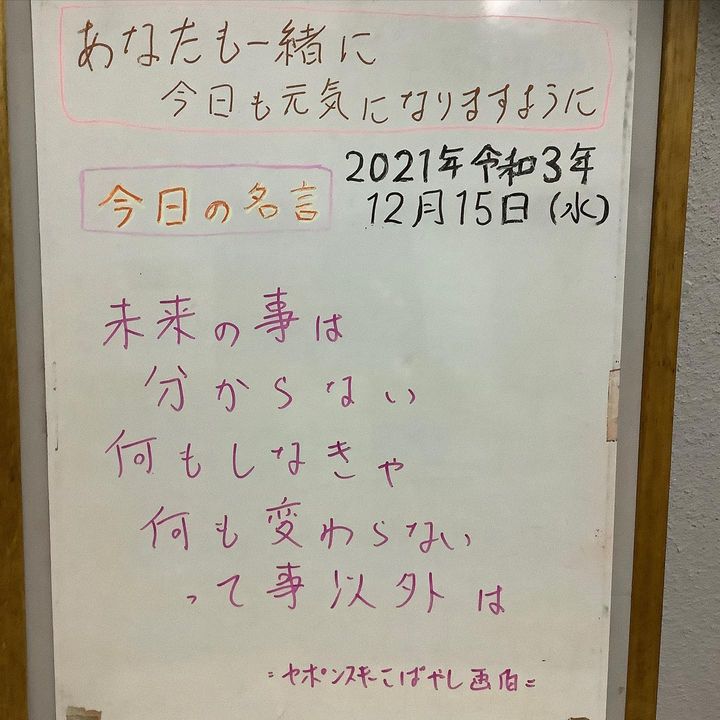 あなたも一緒に
今日も元気になりますように
2021年令和3年
今日の名言
12月15日(水)
未来の事は
分からない
何もしなきゃ
何も変わらない
って事以外は
=ヤポンスキーこばやし画伯=